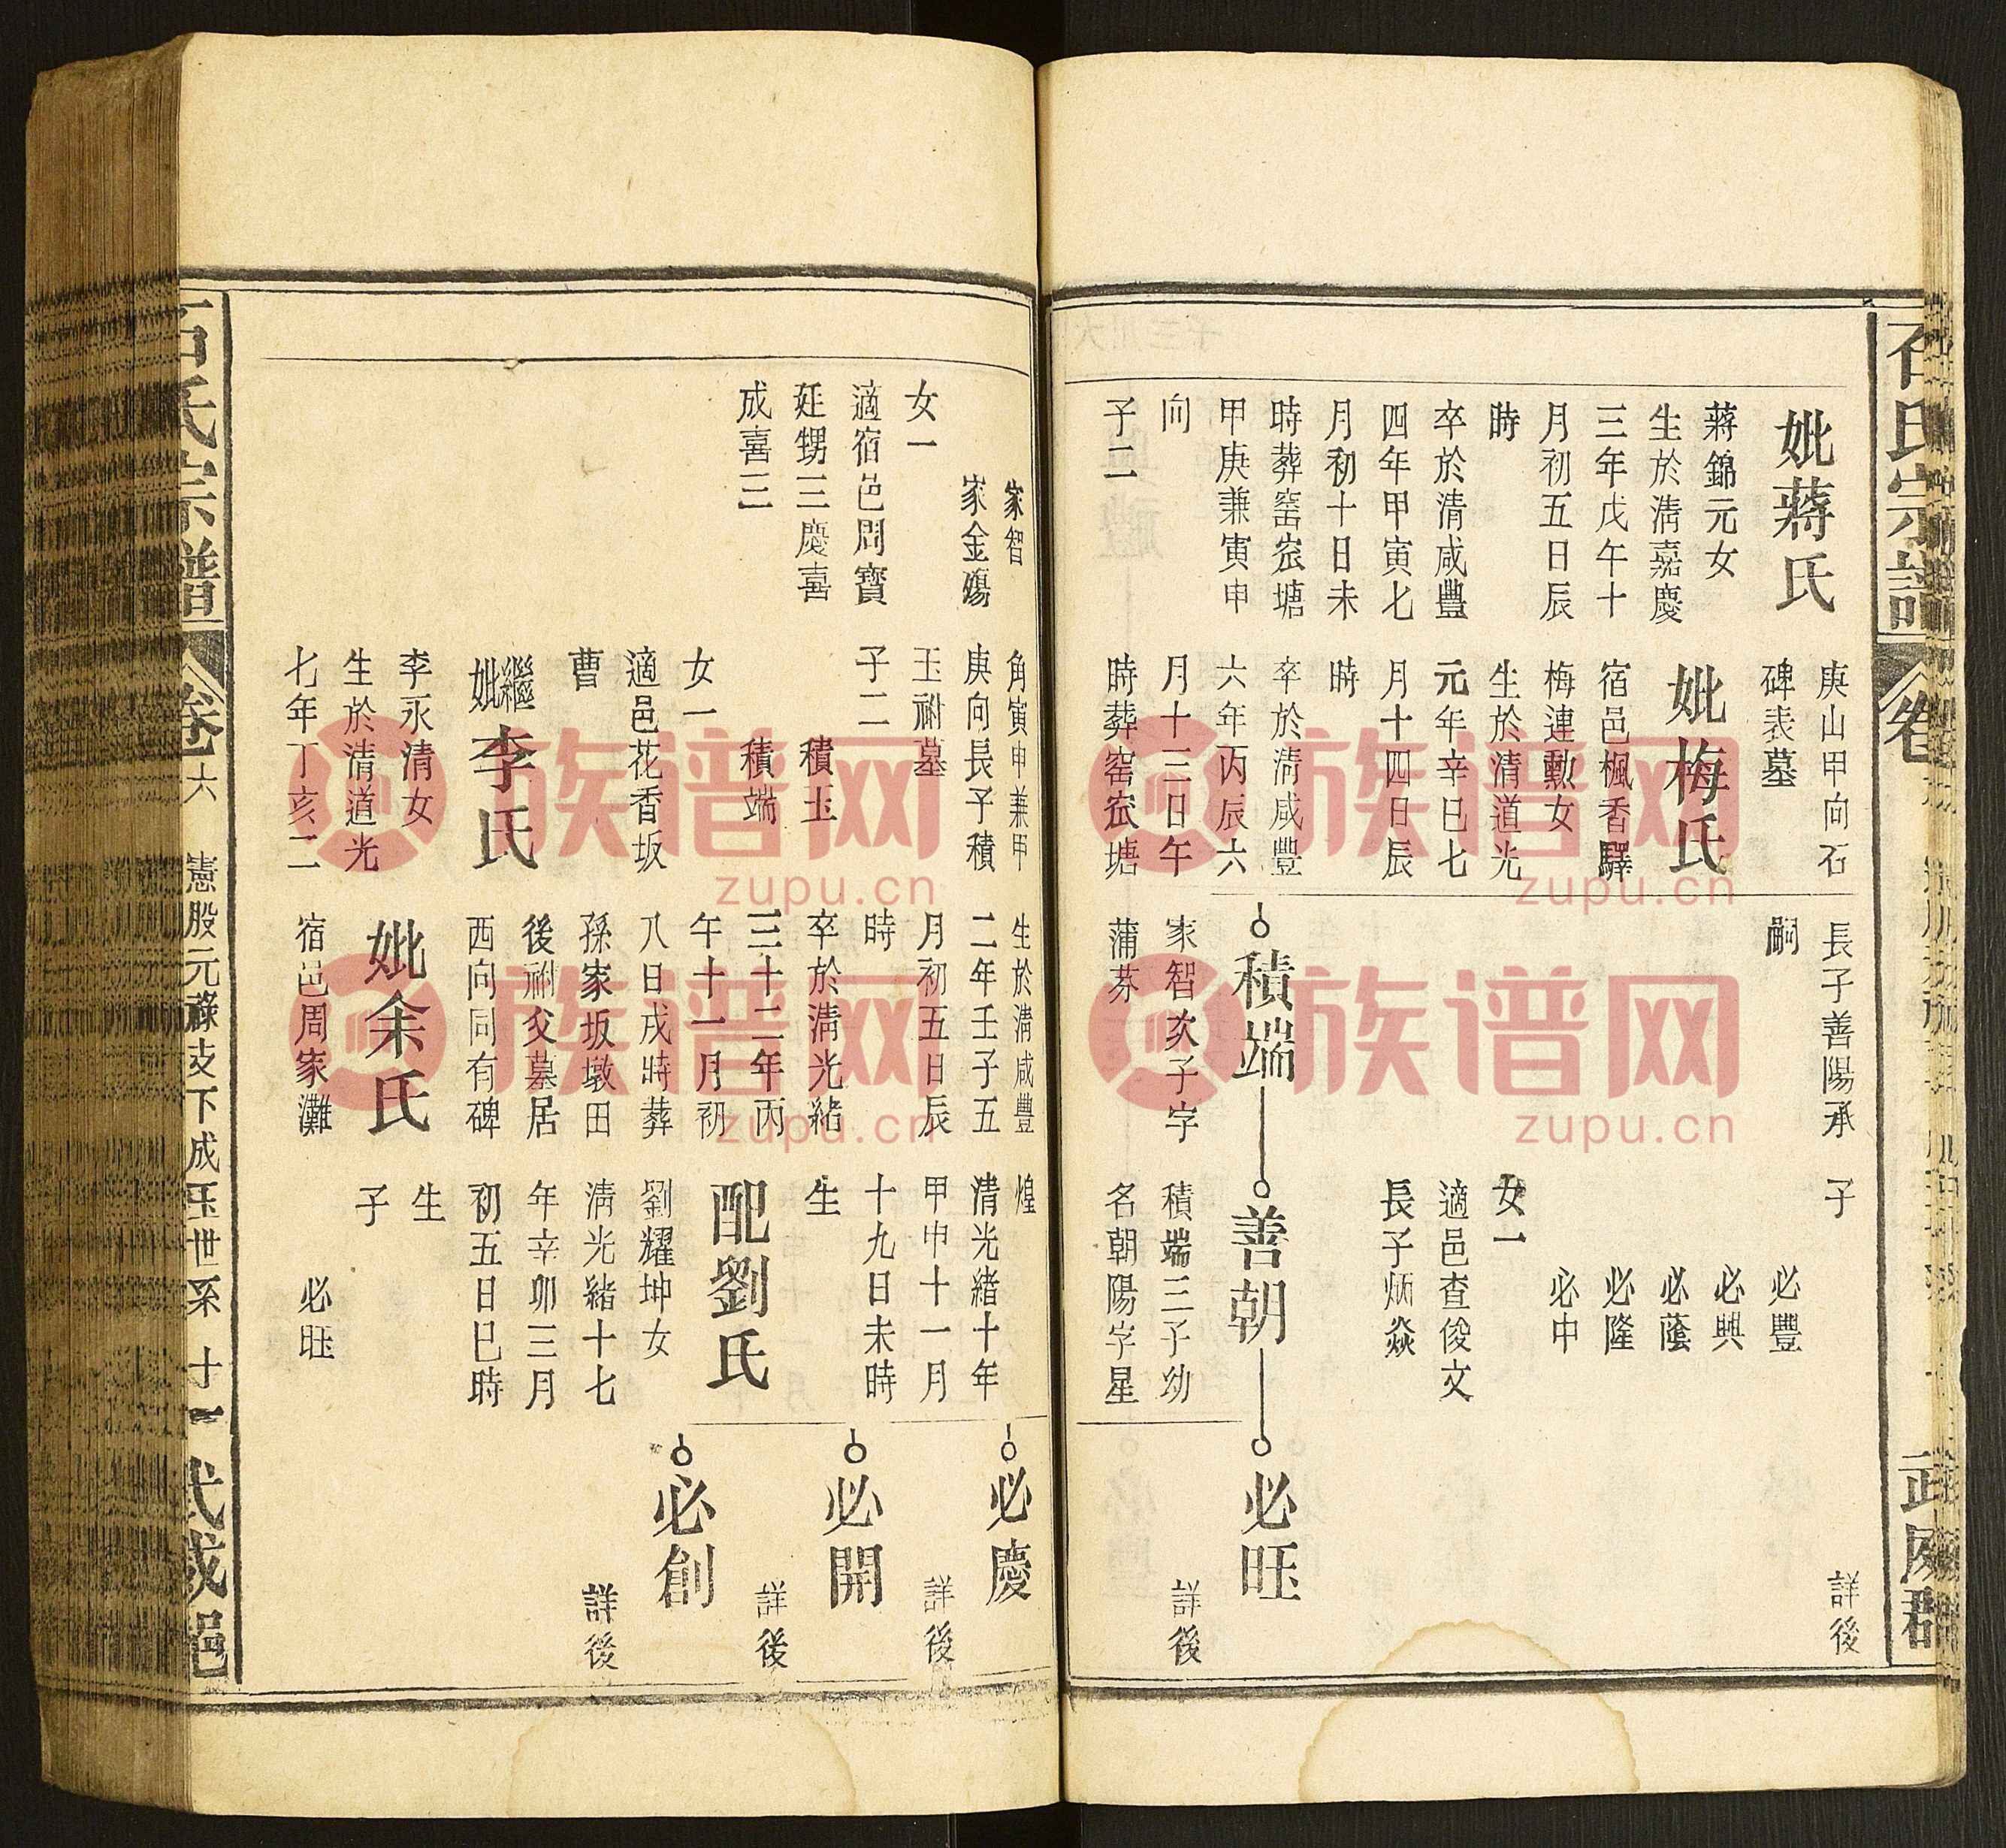 石氏宗譜
卷
武威郡
妣蔣氏
蔣錦元女
生於清嘉慶
三年戊午十
月初五日辰
時
卒於清咸豐
四年甲寅七
月初十日未
時葬窑宏塘
甲庚兼寅申
向
子二
庚山甲向石
碑表墓
妣梅氏
宿邑楓香驛
梅連勳女
生於清道光
元年辛巳七
月十四日辰
時
卒於淸咸豐
六年丙辰六
月十三日午
時葬窑宏塘
長子善陽承
嗣
積端
家智次子字
蒲芬
子
必豐
必興
必蔭
必隆
必中
女一
適邑查俊文
長子炳焱
善朝
積端三子幼
名朝陽字星
詳後
必旺
詳後
家智
家金殤
女一
適宿邑周寶
廷甥三慶喜
成喜三
角寅申兼甲
庚向長子積
玉祔墓
子二
積玉
積端
女一
適邑花香坂
曹
繼妣李氏
李永清女
生於清道光
七年丁亥二
生於淸咸豐
二年壬子五
月初五日辰
時
卒於淸光緒
三十二年丙
午十一月初
八日戌時葬
孫家坂墩田
後祔父墓居
西向同有碑
妣余氏
宿邑周家灘
煌
清光緒十年
甲申十一月
十九日未時
生
配劉氏
劉耀坤女
淸光緒十七
年辛卯三月
初五日巳時
生
子
必旺
必慶
詳後
必開
詳後
必創
詳後
石氏宗譜
卷六
憲股元祿支下成玉世系
十一
武威郡
族谱网
zupu.cn
族谱网
zupu.cn
族谱网
zupu.cn
族谱网
zupu.cn